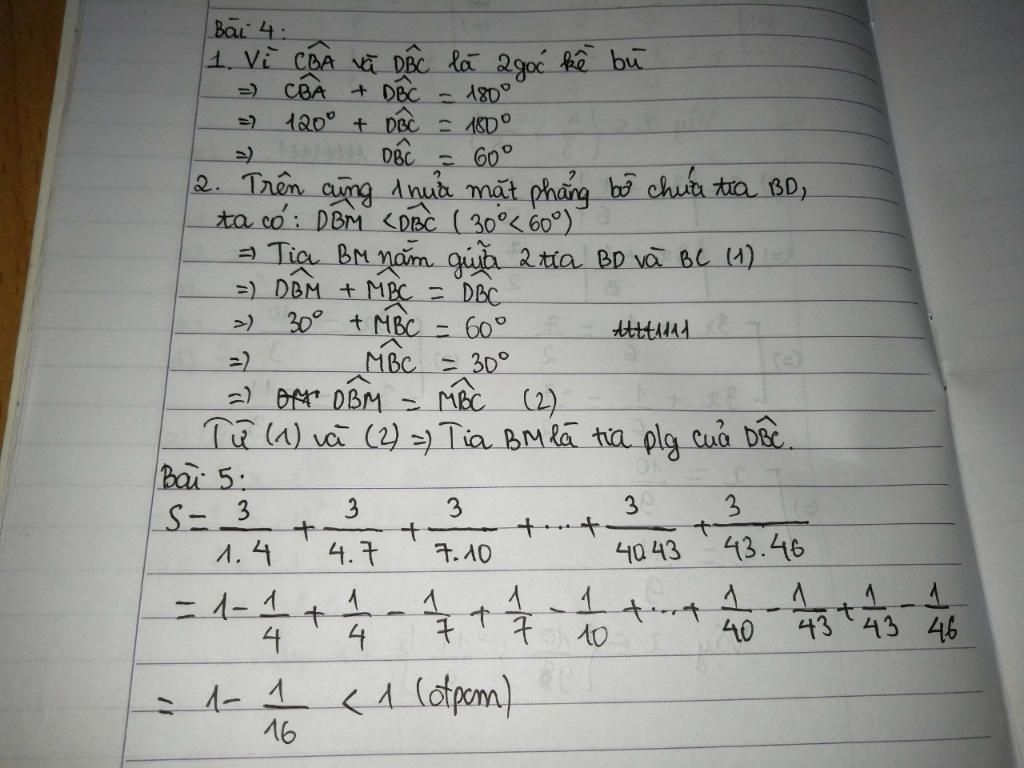 Bài 4:
1. Vì CBÂ và DBĈ là 2 góc kề bù
=> CBÂ + DBĈ = 180°
=> 120° + DBĈ = 180°
=> DBĈ = 60°
2. Trên cùng 1 nửa mặt phẳng bờ chứa tia BD,
ta có: DBM̂ < DBĈ (30° < 60°)
=> Tia BM nằm giữa 2 tia BD và BC (1)
=> DBM̂ + MBĈ = DBĈ
=> 30° + MBĈ = 60°
=> MBĈ = 30°
=> DBM̂ = MBĈ (2)
Từ (1) và (2) => Tia BM là tia plg của DBĈ.
Bài 5:
S = 3/1.4 + 3/4.7 + 3/7.10 + ... + 3/40.43 + 3/43.46
= 1 - 1/4 + 1/4 - 1/7 + 1/7 - 1/10 + ... + 1/40 - 1/43 + 1/43 - 1/46
= 1 - 1/16 < 1 (đpcm)